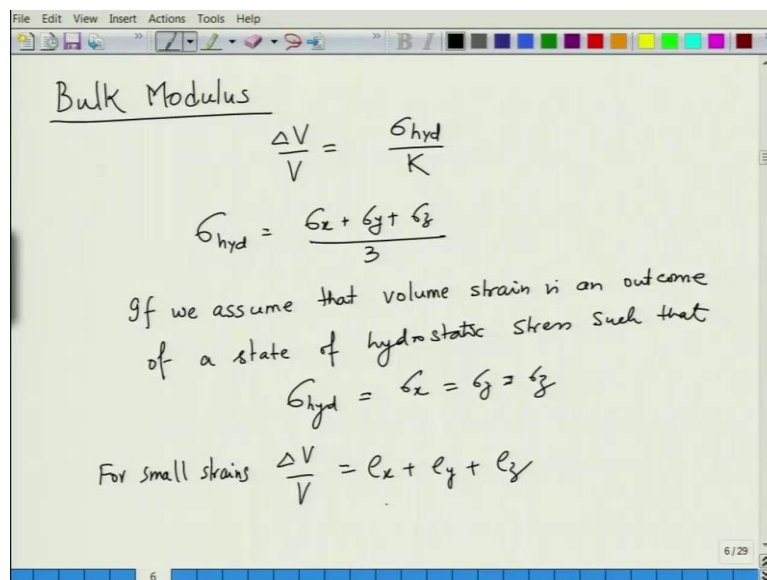 File Edit View Insert Actions Tools Help
Bulk Modulus
ΔV/V = σhyd/K
σhyd = σx + σy + σz / 3
If we assume that volume strain is an outcome
of a state of hydrostatic stress such that
σhyd = σx = σy = σz
For small strains ΔV/V = ex + ey + ez
6/29
6